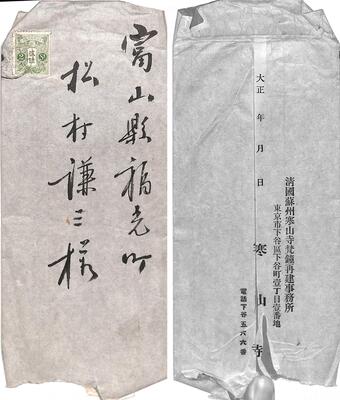 富山縣福光町
松村謙三様
清國蘇州寒山寺梵鐘再建事務所
東京市下谷區下谷町壹丁目壹番地
大正　年　月　日
寒山寺
電話下谷五六六番